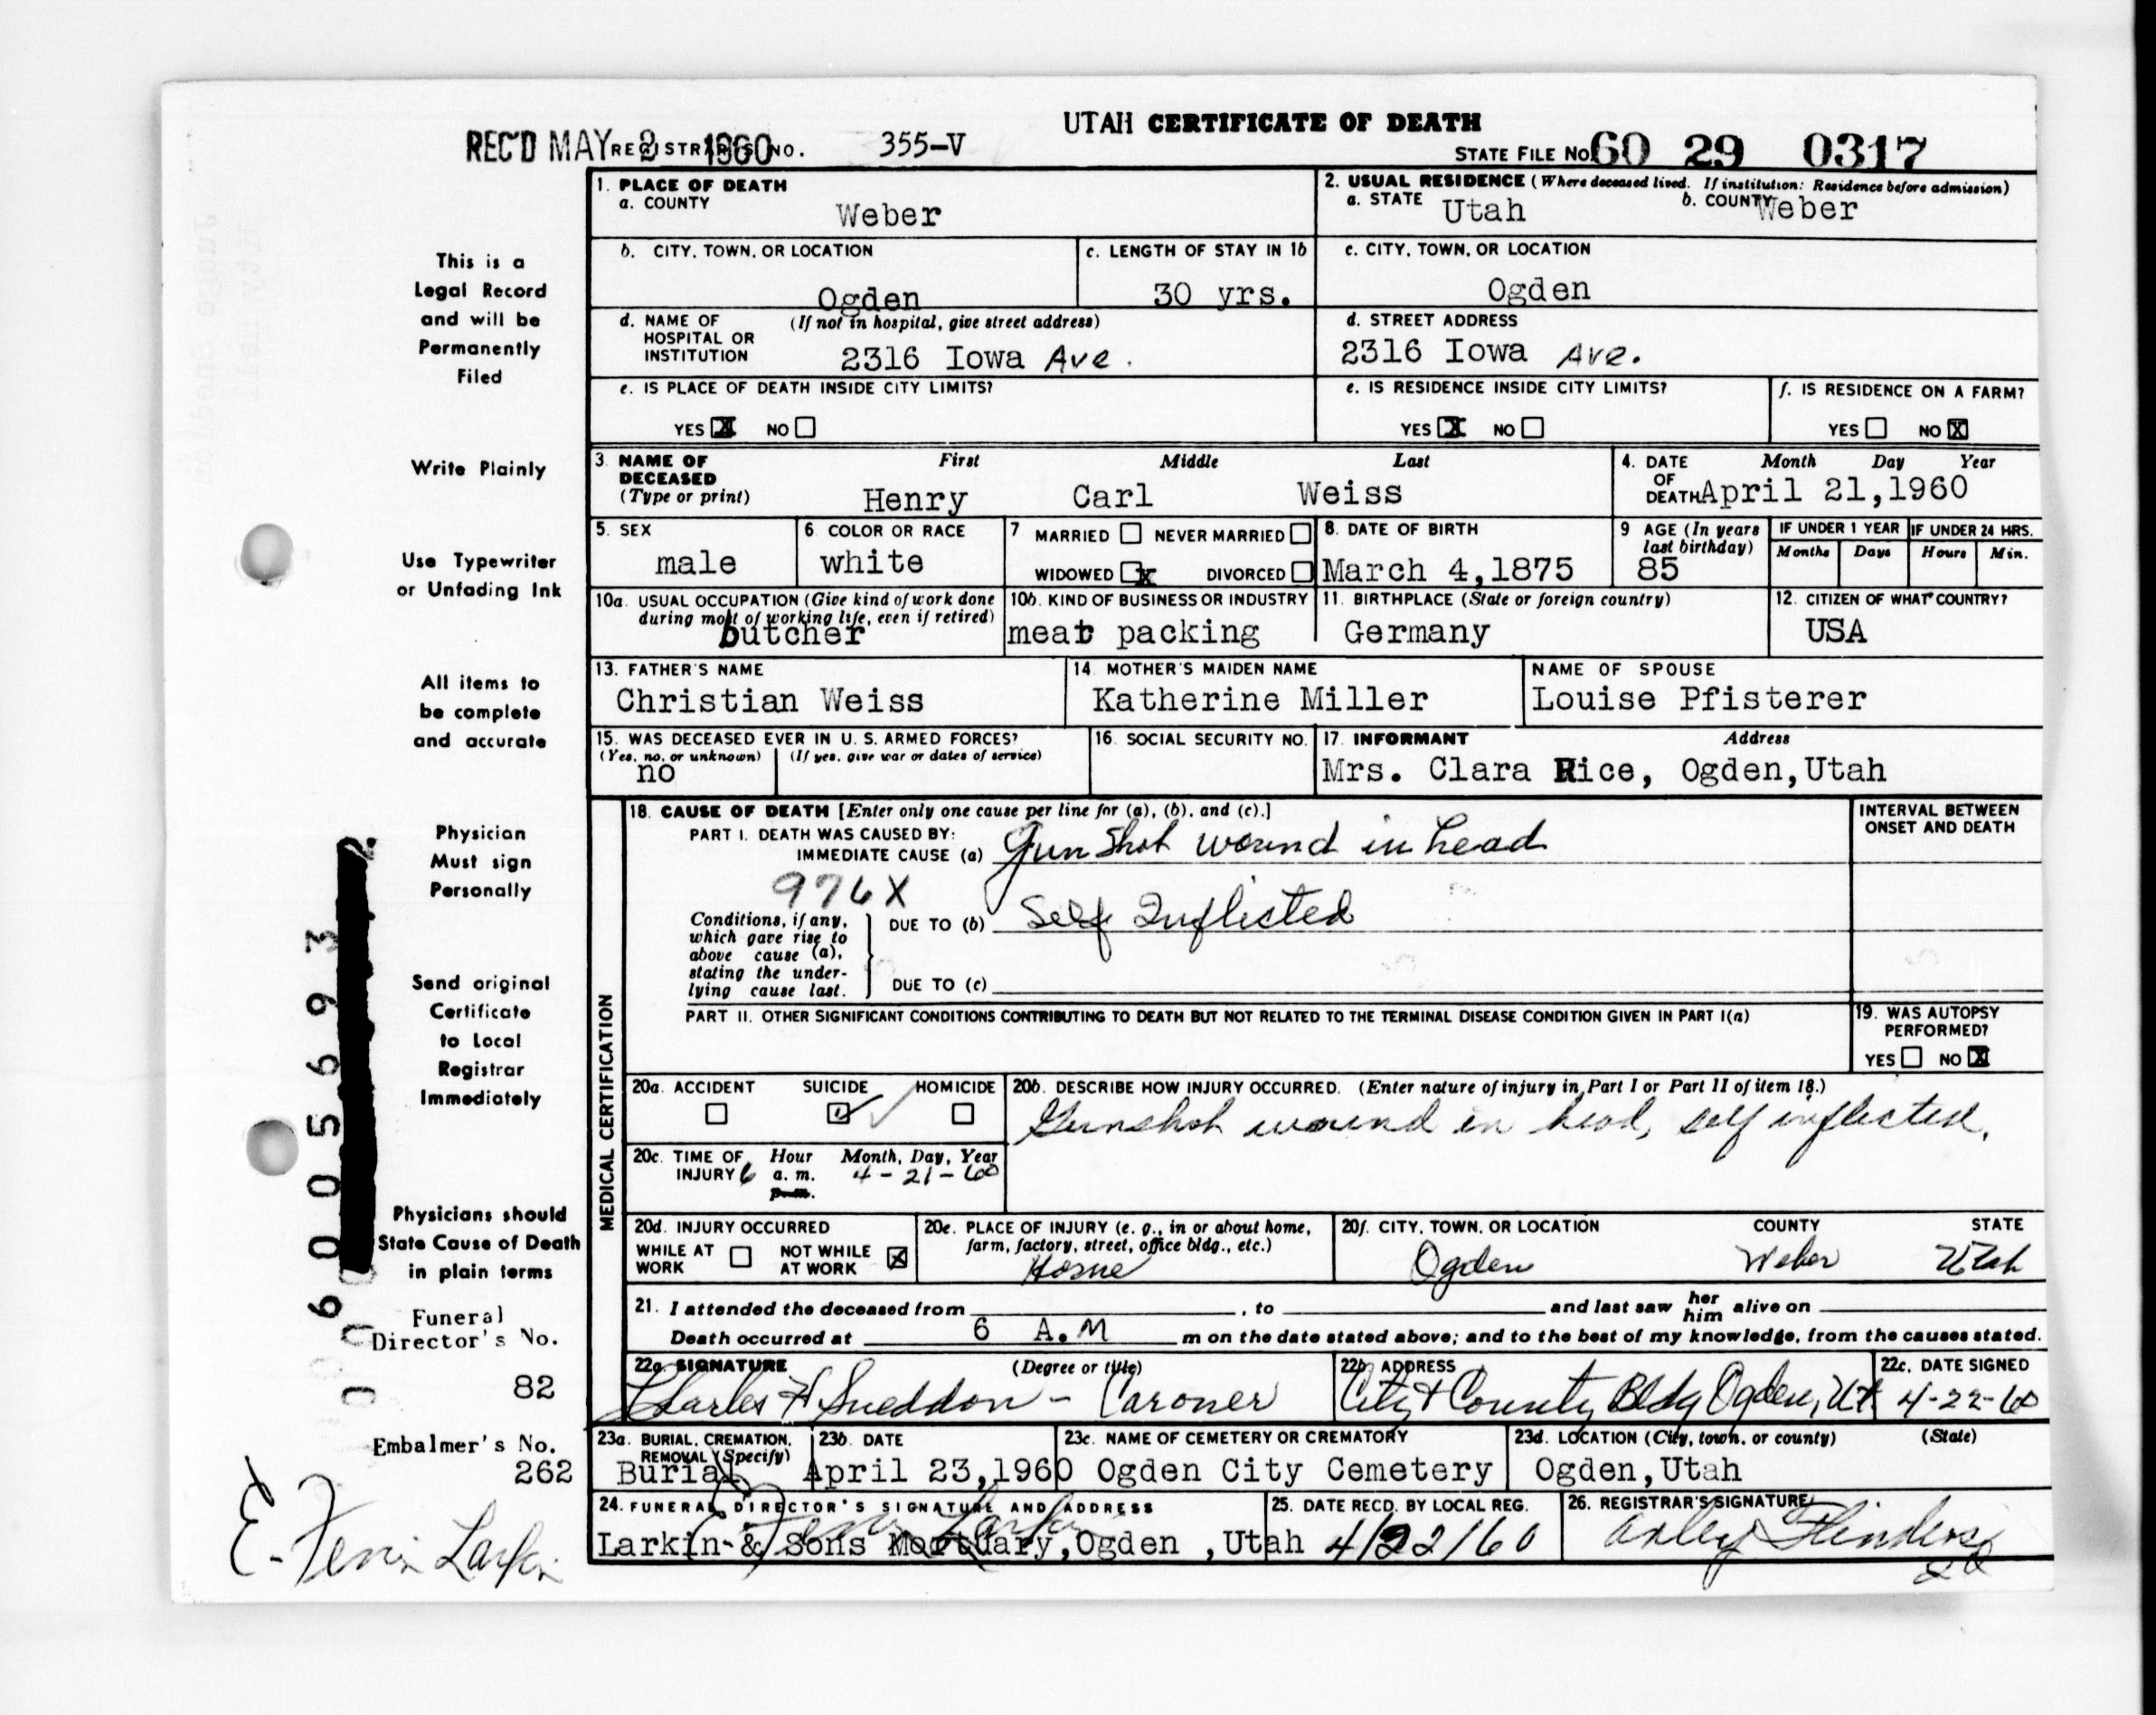 UTAH CERTIFICATE OF DEATH
REC'D MAY 2 1960 REGISTRAR'S NO. 355-V
STATE FILE NO. 60 29 0317
1. PLACE OF DEATH
a. COUNTY
Weber
2. USUAL RESIDENCE (Where deceased lived. If institution: Residence before admission)
a. STATE Utah b. COUNTY Weber
b. CITY, TOWN, OR LOCATION
Ogden
c. LENGTH OF STAY IN 1b
30 yrs.
c. CITY, TOWN, OR LOCATION
Ogden
d. NAME OF HOSPITAL OR INSTITUTION (If not in hospital, give street address)
2316 Iowa Ave.
d. STREET ADDRESS
2316 Iowa Ave.
e. IS PLACE OF DEATH INSIDE CITY LIMITS?
YES X NO
e. IS RESIDENCE INSIDE CITY LIMITS?
YES X NO
f. IS RESIDENCE ON A FARM?
YES NO X
3. NAME OF DECEASED (Type or print)
First Middle Last
Henry Carl Weiss
4. DATE OF DEATH Month Day Year
April 21,1960
5. SEX
male
6. COLOR OR RACE
white
7 MARRIED NEVER MARRIED
WIDOWED X DIVORCED
8. DATE OF BIRTH
March 4,1875
9 AGE (In years last birthday)
85
IF UNDER 1 YEAR
Months Days
IF UNDER 24 HRS.
Hours Min.
10a. USUAL OCCUPATION (Give kind of work done during most of working life, even if retired)
butcher
10b. KIND OF BUSINESS OR INDUSTRY
meat packing
11. BIRTHPLACE (State or foreign country)
Germany
12. CITIZEN OF WHAT COUNTRY?
USA
13. FATHER'S NAME
Christian Weiss
14. MOTHER'S MAIDEN NAME
Katherine Miller
NAME OF SPOUSE
Louise Pfisterer
15. WAS DECEASED EVER IN U. S. ARMED FORCES?
(Yes, no, or unknown) (If yes, give war or dates of service)
no
16. SOCIAL SECURITY NO.
17. INFORMANT Address
Mrs. Clara Rice, Ogden,Utah
MEDICAL CERTIFICATION
18. CAUSE OF DEATH [Enter only one cause per line for (a), (b), and (c).]
PART I. DEATH WAS CAUSED BY:
IMMEDIATE CAUSE (a) Gun Shot wound in head
976X
Conditions, if any, which gave rise to above cause (a), stating the underlying cause last.
DUE TO (b) Self Inflicted
DUE TO (c)
INTERVAL BETWEEN ONSET AND DEATH
PART II. OTHER SIGNIFICANT CONDITIONS CONTRIBUTING TO DEATH BUT NOT RELATED TO THE TERMINAL DISEASE CONDITION GIVEN IN PART I(a)
19. WAS AUTOPSY PERFORMED?
YES NO X
20a. ACCIDENT SUICIDE ✓ HOMICIDE
20b. DESCRIBE HOW INJURY OCCURRED. (Enter nature of injury in Part I or Part II of item 18.)
Gunshot wound in head, self inflicted.
20c. TIME OF INJURY Hour Month, Day, Year
6 a. m. 4-21-60
p. m.
20d. INJURY OCCURRED
WHILE AT WORK NOT WHILE AT WORK X
20e. PLACE OF INJURY (e. g., in or about home, farm, factory, street, office bldg., etc.)
Home
20f. CITY, TOWN, OR LOCATION COUNTY STATE
Ogden Weber Utah
21. I attended the deceased from , to and last saw her him alive on
Death occurred at 6 A.M m on the date stated above; and to the best of my knowledge, from the causes stated.
22a. SIGNATURE (Degree or title)
Charles H Sneddon - Caroner
22b. ADDRESS
City & County Bldg Ogden, Ut.
22c. DATE SIGNED
4-22-60
23a. BURIAL, CREMATION, REMOVAL (Specify)
Burial
23b. DATE
April 23,1960
23c. NAME OF CEMETERY OR CREMATORY
Ogden City Cemetery
23d. LOCATION (City, town, or county) (State)
Ogden,Utah
24. FUNERAL DIRECTOR'S SIGNATURE AND ADDRESS
Larkin & Sons Mortuary,Ogden ,Utah
25. DATE RECD. BY LOCAL REG.
4/22/60
26. REGISTRAR'S SIGNATURE
This is a
Legal Record
and will be
Permanently
Filed
Write Plainly
Use Typewriter
or Unfading Ink
All items to
be complete
and accurate
Physician
Must sign
Personally
Send original
Certificate
to Local
Registrar
Immediately
Physicians should
State Cause of Death
in plain terms
Funeral
Director's No.
82
Embalmer's No.
262
E. Ferrin Larkin